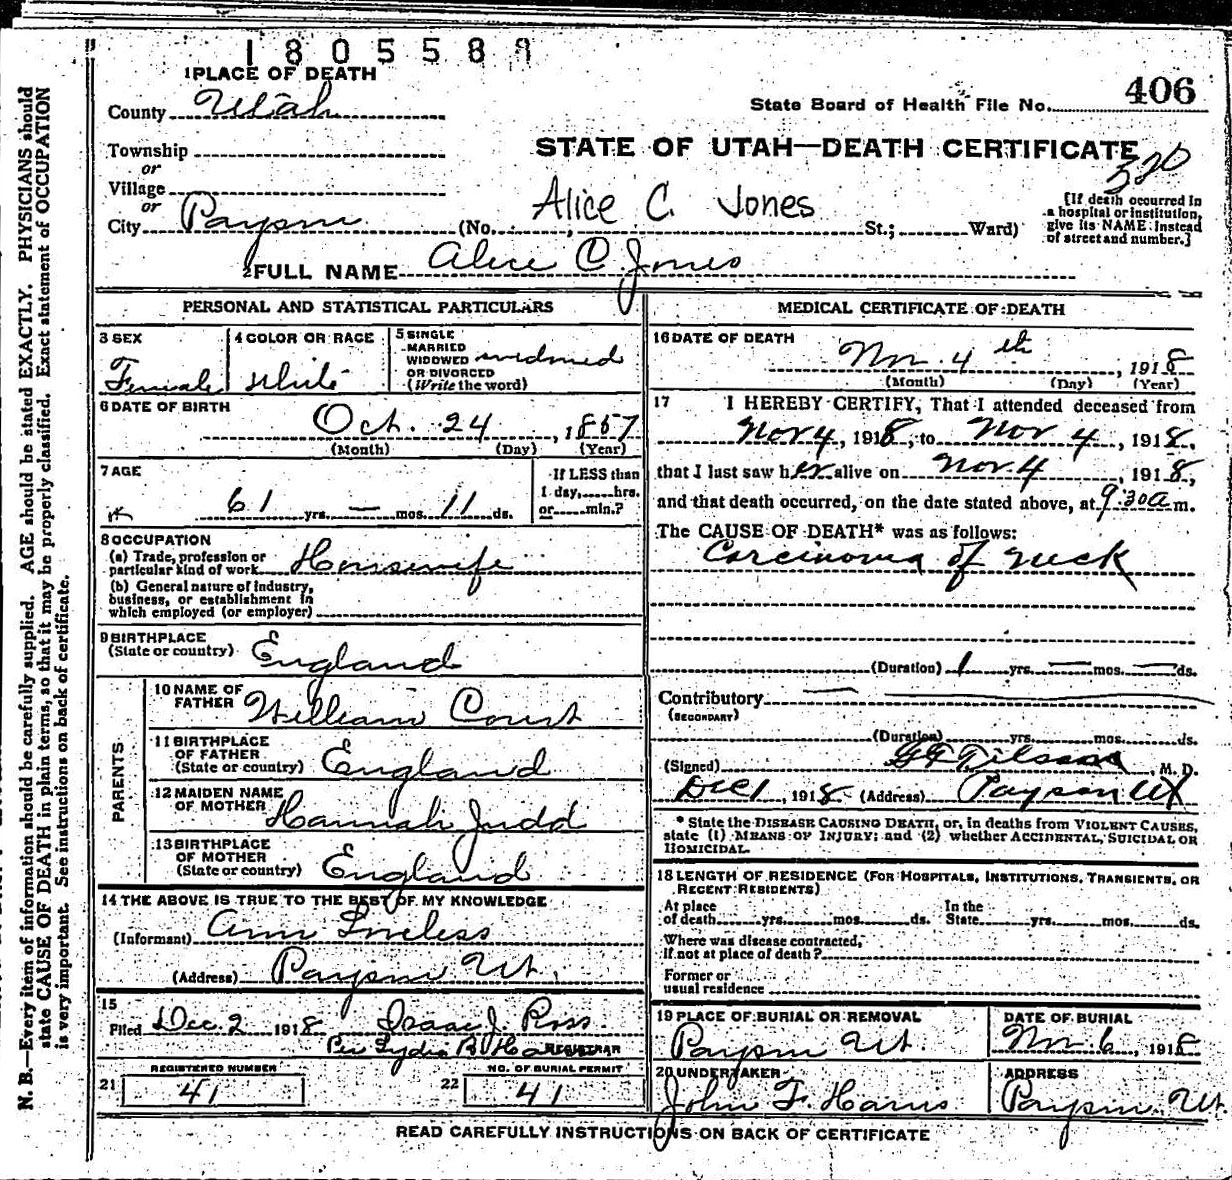 1805588
1 PLACE OF DEATH
County Utah
State Board of Health File No. 406
STATE OF UTAH—DEATH CERTIFICATE
320
Township
or
Village
or
City Payson (No. , St.; Ward)
Alice C. Jones
[If death occurred in
a hospital or institution,
give its NAME instead
of street and number.]
2 FULL NAME Alice C Jones
PERSONAL AND STATISTICAL PARTICULARS
3 SEX
Female
4 COLOR OR RACE
White
5 SINGLE
MARRIED
WIDOWED widowed
OR DIVORCED
(Write the word)
6 DATE OF BIRTH
Oct. 24, 1857
(Month) (Day) (Year)
7 AGE
61 yrs. — mos. 11 ds.
If LESS than
1 day, hrs.
or min.?
8 OCCUPATION
(a) Trade, profession or
particular kind of work Housewife
(b) General nature of industry,
business, or establishment in
which employed (or employer)
9 BIRTHPLACE
(State or country) England
PARENTS
10 NAME OF
FATHER William Court
11 BIRTHPLACE
OF FATHER
(State or country) England
12 MAIDEN NAME
OF MOTHER Hannah Judd
13 BIRTHPLACE
OF MOTHER
(State or country) England
14 THE ABOVE IS TRUE TO THE BEST OF MY KNOWLEDGE
(Informant) Ann Loveless
(Address) Payson Ut.
15
Filed Dec. 2 1918 Isaac J. Ross
Per Lydia B. REGISTRAR
REGISTERED NUMBER
21 41
NO. OF BURIAL PERMIT
22 41
MEDICAL CERTIFICATE OF DEATH
16 DATE OF DEATH
Nov. 4th, 1918
(Month) (Day) (Year)
17 I HEREBY CERTIFY, That I attended deceased from
Nov 4, 1918, to Nov 4, 1918,
that I last saw her alive on Nov. 4, 1918,
and that death occurred, on the date stated above, at 9:30 a m.
The CAUSE OF DEATH* was as follows:
Carcinoma of neck
(Duration) 1 yrs. — mos. — ds.
Contributory —
(SECONDARY)
(Duration) yrs. mos. ds.
(Signed) M. D.
Dec 1, 1918 (Address) Payson Ut
* State the DISEASE CAUSING DEATH, or, in deaths from VIOLENT CAUSES,
state (1) MEANS OF INJURY; and (2) whether ACCIDENTAL, SUICIDAL OR
HOMICIDAL.
18 LENGTH OF RESIDENCE (FOR HOSPITALS, INSTITUTIONS, TRANSIENTS, OR
RECENT RESIDENTS)
At place In the
of death yrs. mos. ds. State yrs. mos. ds.
Where was disease contracted,
if not at place of death?
Former or
usual residence
19 PLACE OF BURIAL OR REMOVAL
Payson Ut
DATE OF BURIAL
Nov. 6, 1918
20 UNDERTAKER
John F. Hams
ADDRESS
Payson, Ut
READ CAREFULLY INSTRUCTIONS ON BACK OF CERTIFICATE
N. B.—Every item of information should be carefully supplied. AGE should be stated EXACTLY. PHYSICIANS should
state CAUSE OF DEATH in plain terms, so that it may be properly classified. Exact statement of OCCUPATION
is very important. See instructions on back of certificate.